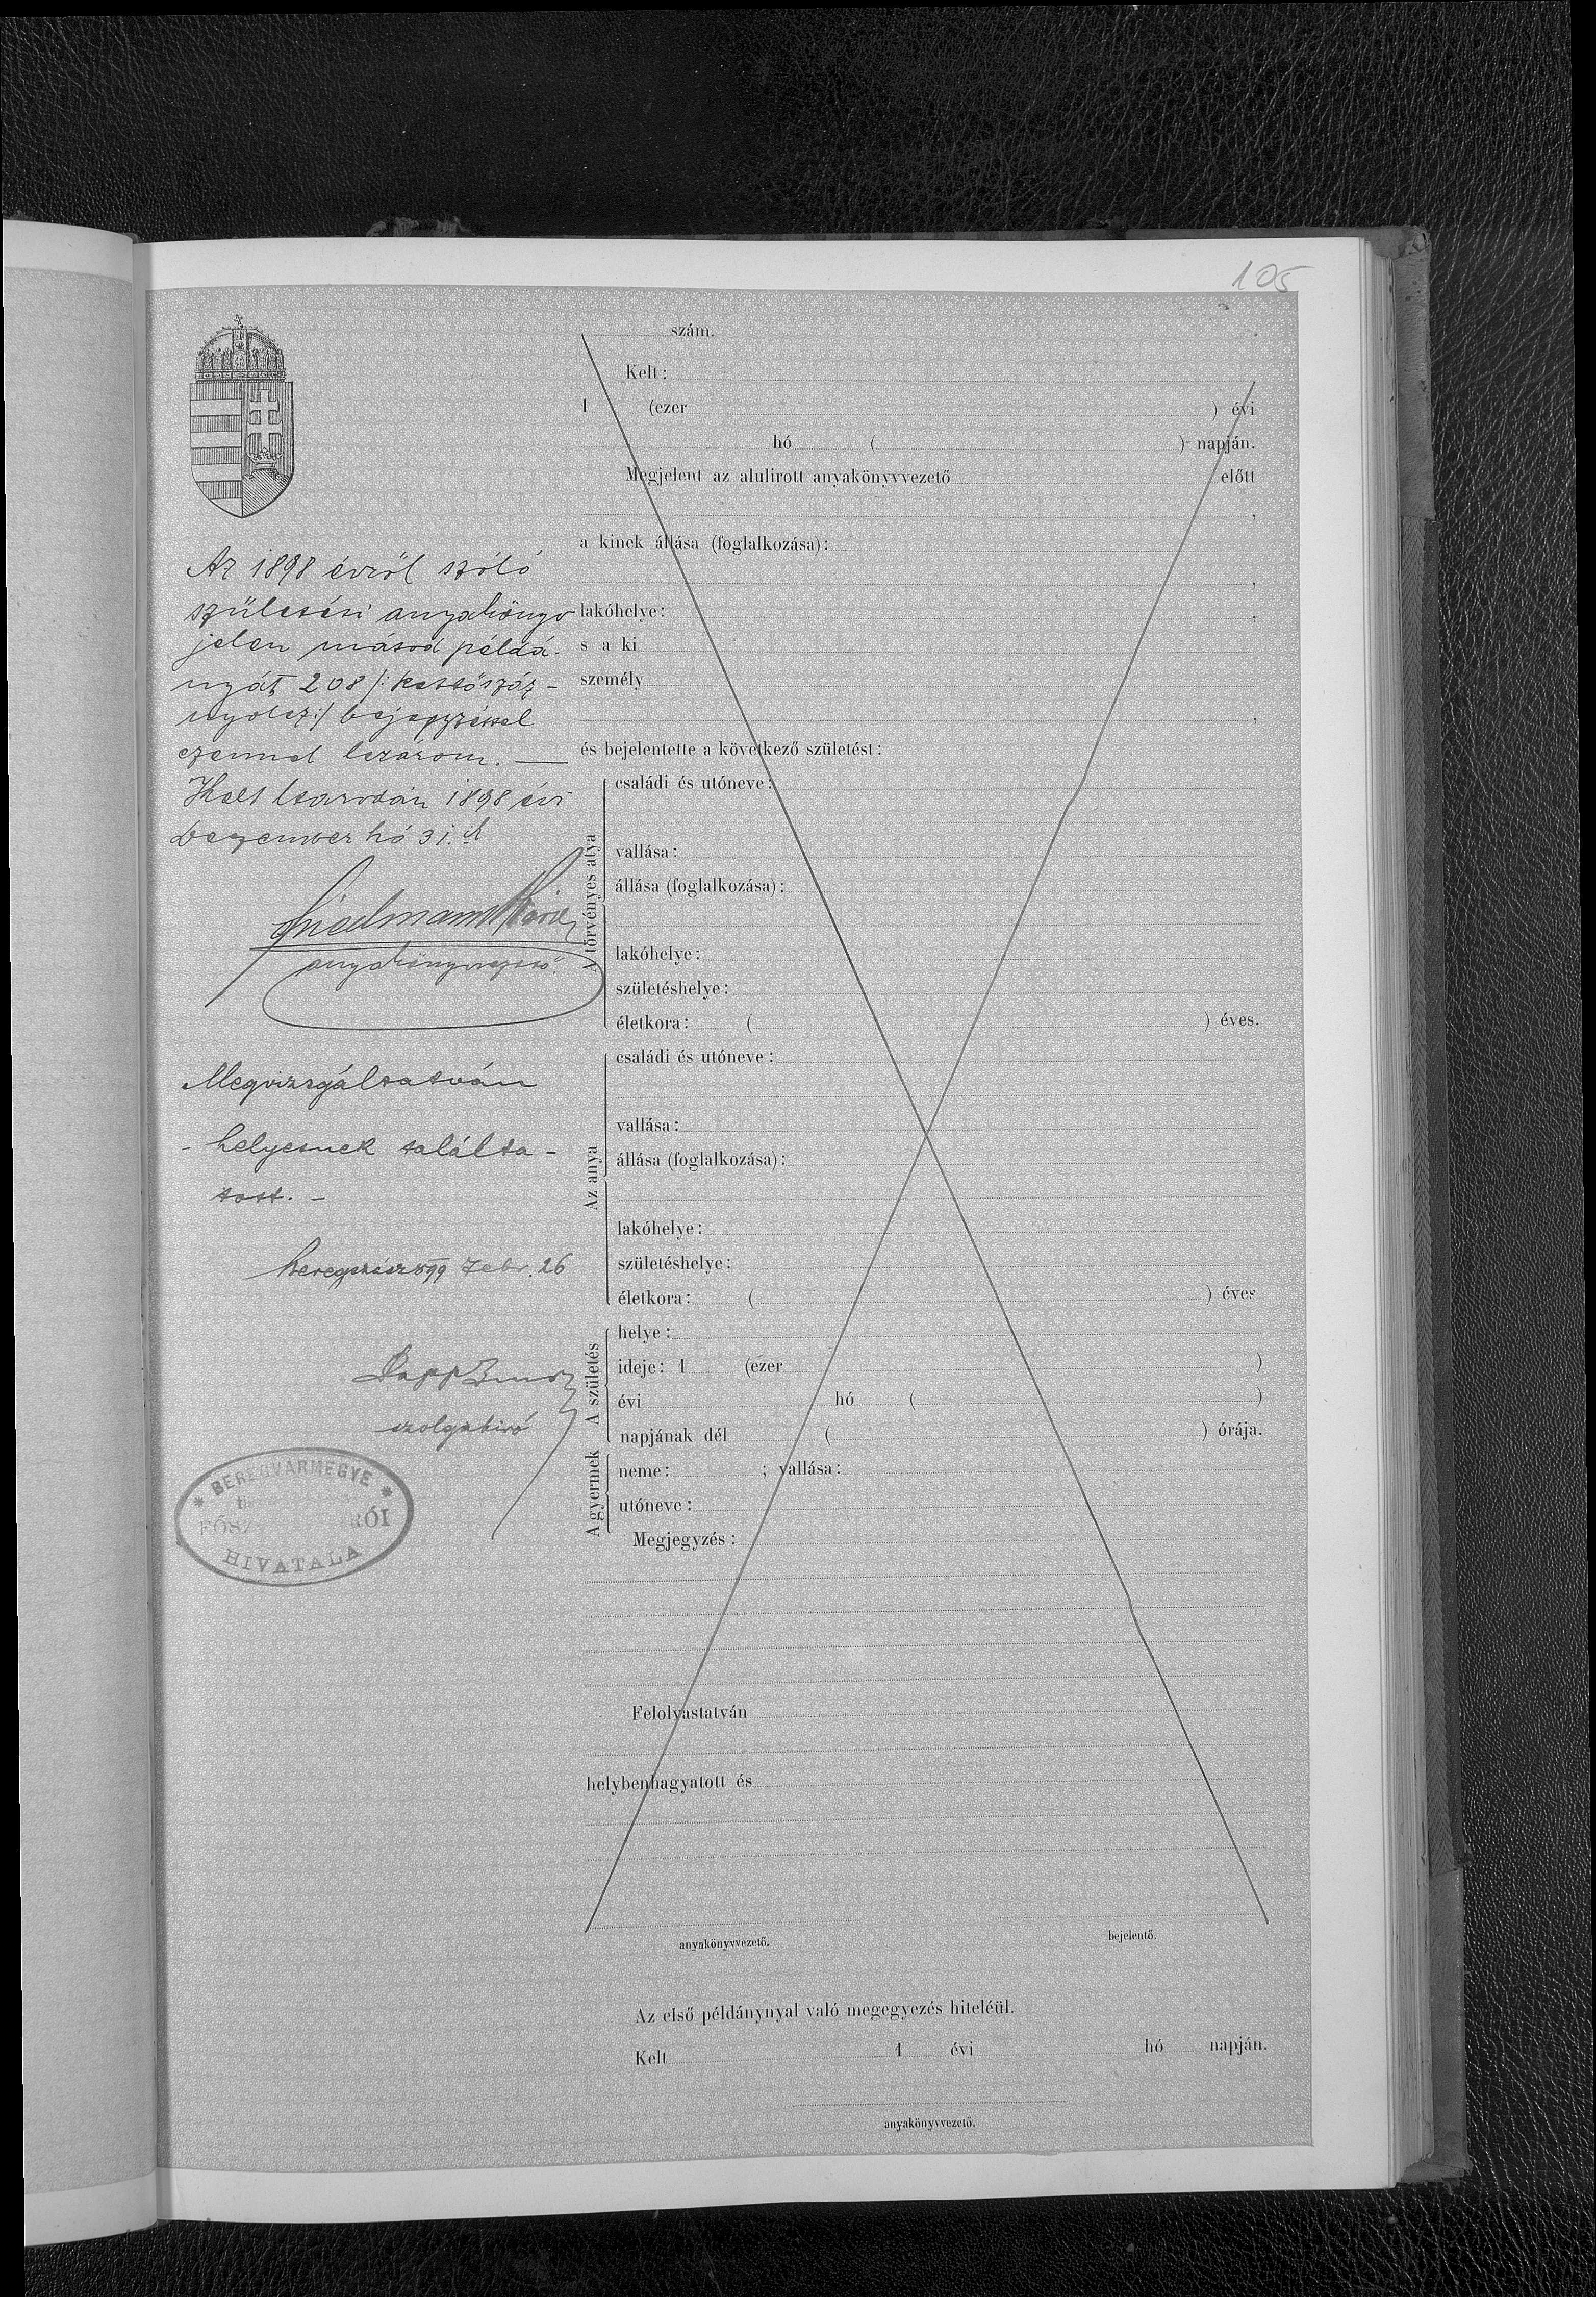 105
szám.
Kelt:
1 (ezer ) évi
hó ( ) napján.
Megjelent az alulirott anyakönyvvezető előtt
a kinek állása (foglalkozása):
lakóhelye:
s a ki
személy
és bejelentette a következő születést:
A törvényes atya
családi és utóneve:
vallása:
állása (foglalkozása):
lakóhelye:
születéshelye:
életkora: ( ) éves.
Az anya
családi és utóneve:
vallása:
állása (foglalkozása):
lakóhelye:
születéshelye:
életkora: ( ) éves
A születés
helye:
ideje: 1 (ezer )
évi hó ( )
napjának dél ( ) órája.
A gyermek
neme: ; vallása:
utóneve:
Megjegyzés:
Felolvastatván
helybenhagyatott és
anyakönyvvezető. bejelentő.
Az első példánynyal való megegyezés hiteléül.
Kelt 1 évi hó napján.
anyakönyvvezető.
Az 1898 évről szóló
születési anyakönyv
jelen másod példá-
nyát 208 /: kettőszáz-
nyolcz:/ bejegyzéssel
ezennel lezárom. —
Kelt Csarodán 1898 évi
Dezember hó 31.
anyakönyvvezető.
Megvizsgáltatván
- helyesnek találta-
tott. -
Beregszász 899 Febr. 26
Papp
szolgabiró
* BEREGVÁRMEGYE *
HIVATALA